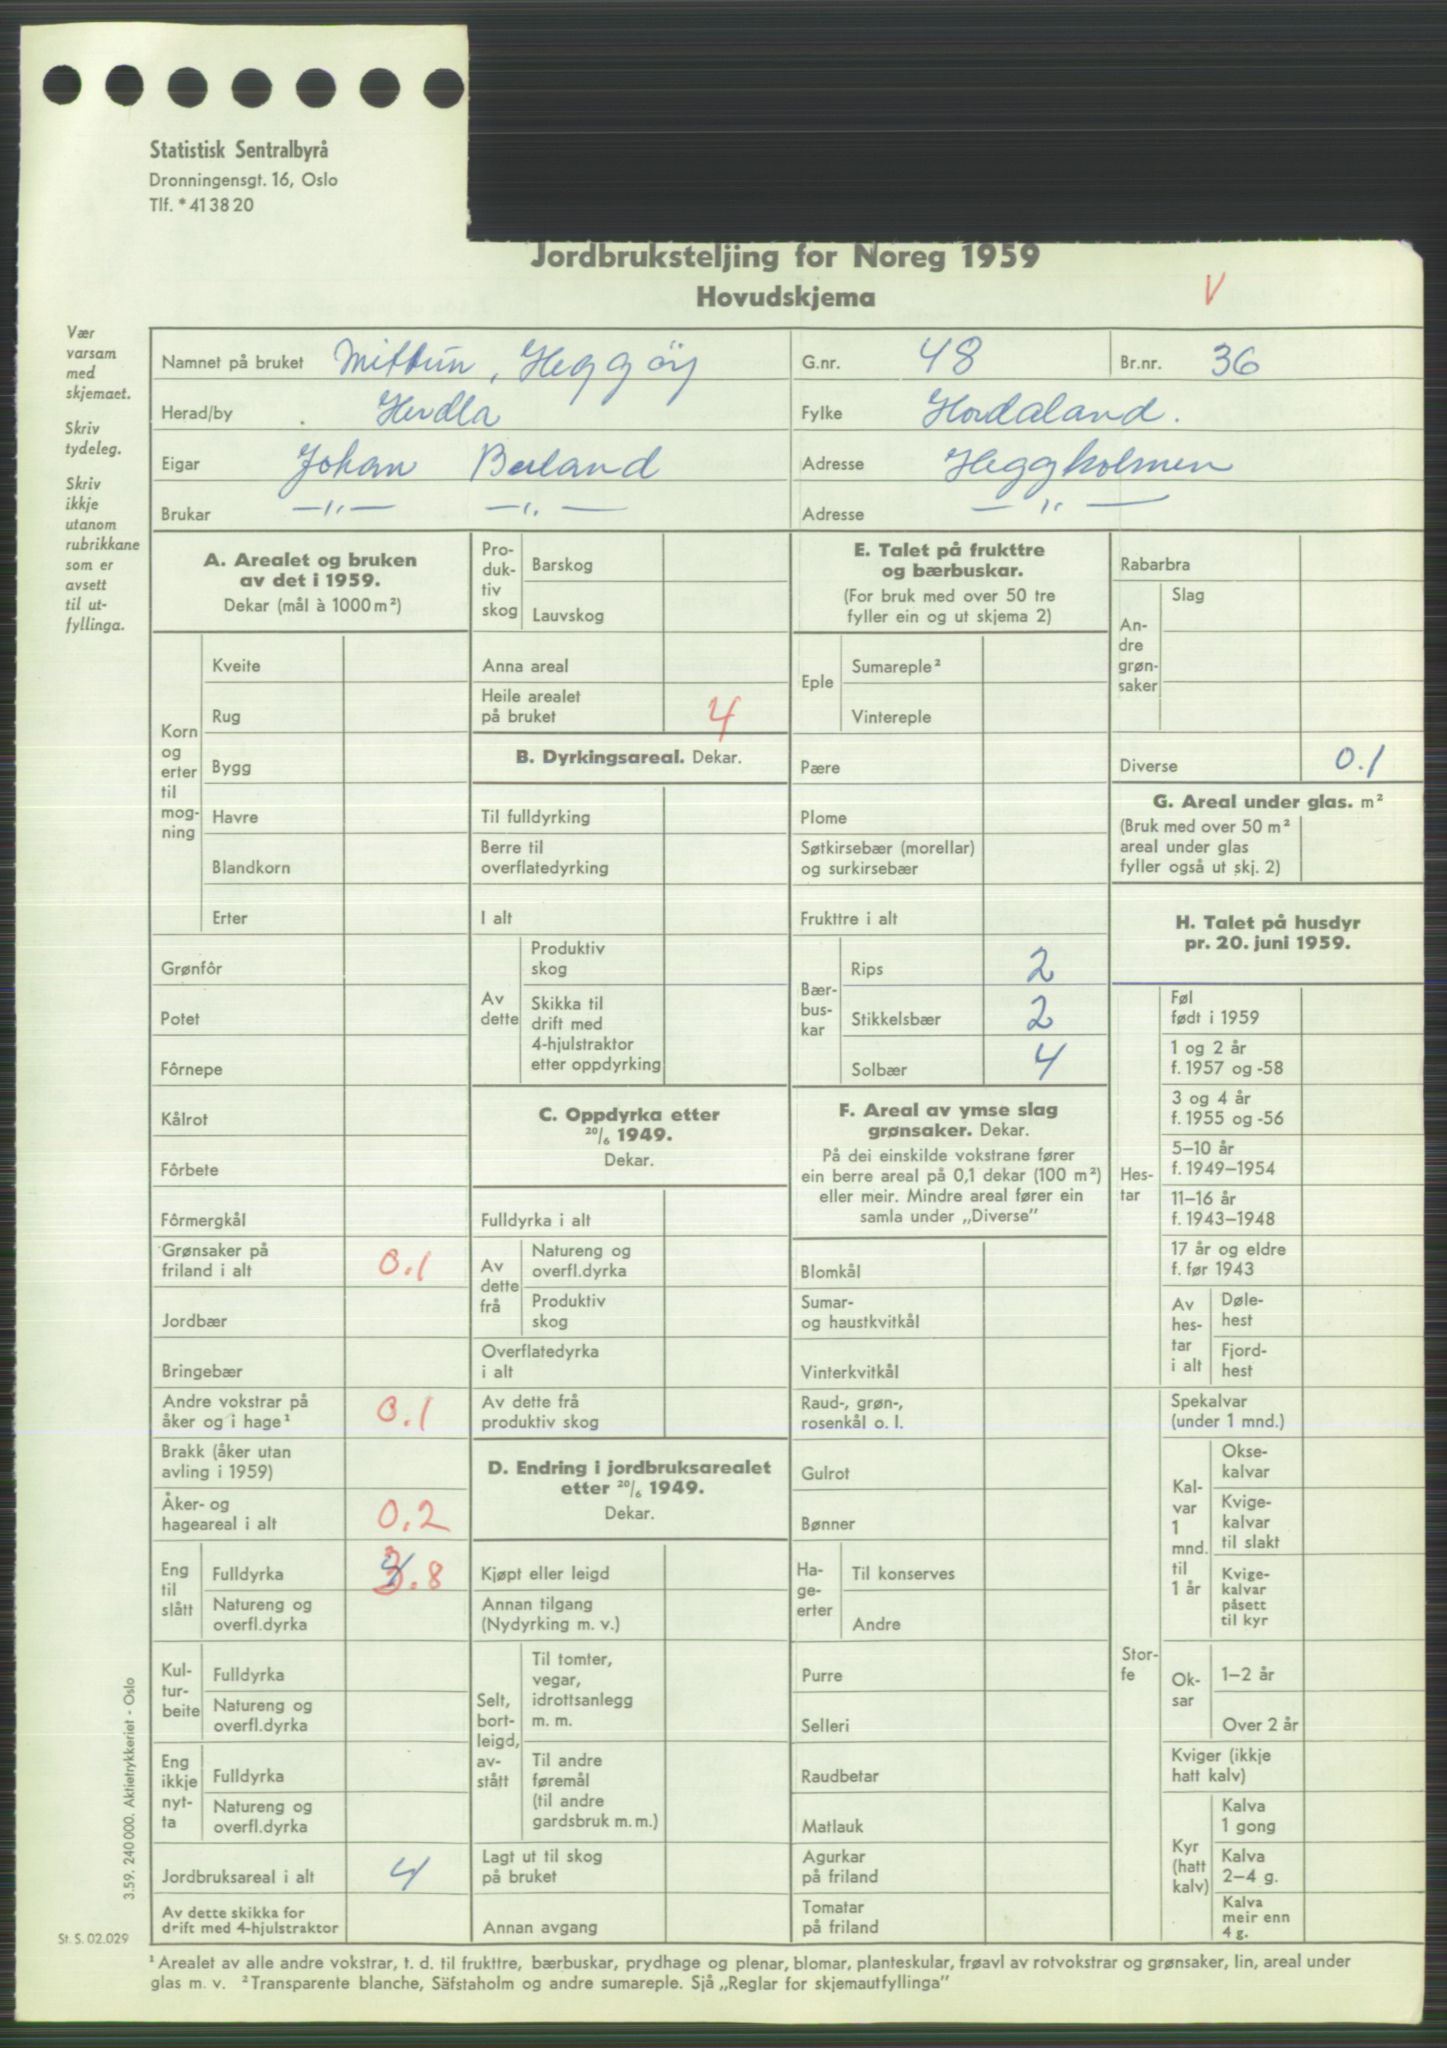 Statistisk Sentralbyrå
Dronningensgt. 16, Oslo
Tlf. * 41 38 20
Jordbruksteljing for Noreg 1959
Hovudskjema
V
Vær
varsam
med
skjemaet.
Skriv
tydeleg.
Skriv
ikkje
utanom
rubrikkane
som er
avsett
til ut-
fyllinga.
Namnet på bruket Mittun, Heggøy G.nr. 48 Br.nr. 36
Herad/by Herdla Fylke Hordaland.
Eigar Johan Berland Adresse Heggholmen
Brukar —"— —"— Adresse —"—
A. Arealet og bruken
av det i 1959.
Dekar (mål à 1000 m²)
Korn
og
erter
til
mog-
ning
Kveite
Rug
Bygg
Havre
Blandkorn
Erter
Grønfôr
Potet
Fôrnepe
Kålrot
Fôrbete
Fôrmergkål
Grønsaker på
friland i alt 0.1
Jordbær
Bringebær
Andre vokstrar på
åker og i hage¹ 0.1
Brakk (åker utan
avling i 1959)
Åker- og
hageareal i alt 0.2
Eng
til
slått
Fulldyrka 3.8
Natureng og
overfl.dyrka
Kul-
tur-
beite
Fulldyrka
Natureng og
overfl.dyrka
Eng
ikkje
nyt-
ta
Fulldyrka
Natureng og
overfl.dyrka
Jordbruksareal i alt 4
Av dette skikka for
drift med 4-hjulstraktor
Pro-
duk-
tiv
skog
Barskog
Lauvskog
Anna areal
Heile arealet
på bruket 4
B. Dyrkingsareal. Dekar.
Til fulldyrking
Berre til
overflatedyrking
I alt
Av
dette
Produktiv
skog
Skikka til
drift med
4-hjulstraktor
etter oppdyrking
C. Oppdyrka etter
20/6 1949.
Dekar.
Fulldyrka i alt
Av
dette
frå
Natureng og
overfl.dyrka
Produktiv
skog
Overflatedyrka
i alt
Av dette frå
produktiv skog
D. Endring i jordbruksarealet
etter 20/6 1949.
Dekar.
Kjøpt eller leigd
Annan tilgang
(Nydyrking m. v.)
Selt,
bort-
leigd,
av-
stått
Til tomter,
vegar,
idrottsanlegg
m. m.
Til andre
føremål
(til andre
gardsbruk m. m.)
Lagt ut til skog
på bruket
Annan avgang
E. Talet på frukttre
og bærbuskar.
(For bruk med over 50 tre
fyller ein og ut skjema 2)
Eple
Sumareple²
Vintereple
Pære
Plome
Søtkirsebær (morellar)
og surkirsebær
Frukttre i alt
Bær-
bus-
kar
Rips 2
Stikkelsbær 2
Solbær 4
F. Areal av ymse slag
grønsaker. Dekar.
På dei einskilde vokstrane fører
ein berre areal på 0,1 dekar (100 m²)
eller meir. Mindre areal fører ein
samla under „Diverse”
Blomkål
Sumar-
og haustkvitkål
Vinterkvitkål
Raud-, grøn-,
rosenkål o. l.
Gulrot
Bønner
Ha-
ge-
erter
Til konserves
Andre
Purre
Selleri
Raudbetar
Matlauk
Agurkar
på friland
Tomatar
på friland
Rabarbra
An-
dre
grøn-
saker
Slag
Diverse 0.1
G. Areal under glas. m²
(Bruk med over 50 m²
areal under glas
fyller også ut skj. 2)
H. Talet på husdyr
pr. 20. juni 1959.
Hes-
tar
Føl
født i 1959
1 og 2 år
f. 1957 og -58
3 og 4 år
f. 1955 og -56
5–10 år
f. 1949–1954
11–16 år
f. 1943–1948
17 år og eldre
f. før 1943
Av
hes-
tar
i alt
Døle-
hest
Fjord-
hest
Stor-
fe
Spekalvar
(under 1 mnd.)
Kal-
var
1
mnd.
til
1 år
Okse-
kalvar
Kvige-
kalvar
til slakt
Kvige-
kalvar
påsett
til kyr
Ok-
sar
1–2 år
Over 2 år
Kviger (ikkje
hatt kalv)
Kyr
(hatt
kalv)
Kalva
1 gong
Kalva
2–4 g.
Kalva
meir enn
4 g.
3.59. 240 000. Aktietrykkeriet - Oslo
St. S. 02.029
¹ Arealet av alle andre vokstrar, t. d. til frukttre, bærbuskar, prydhage og plenar, blomar, planteskular, frøavl av rotvokstrar og grønsaker, lin, areal under
glas m. v. ² Transparente blanche, Säfstaholm og andre sumareple. Sjå „Reglar for skjemautfyllinga”